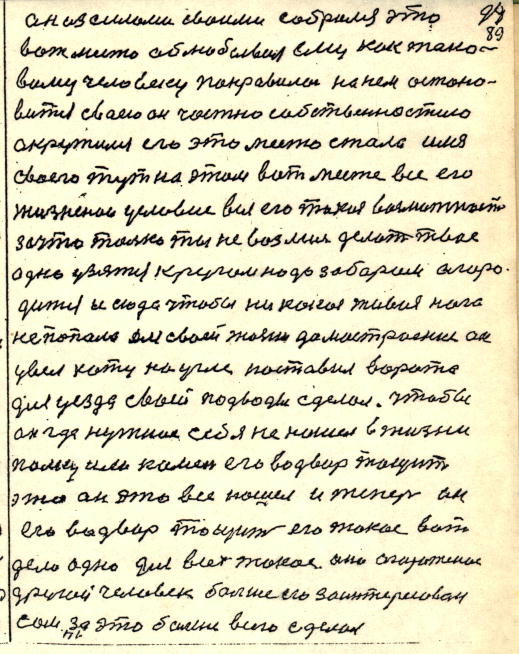 94
89
ано з силами своими собрался это
вот место облюбовал ему как тако-
вому человеку понравилось на нем остоно-
вится своею он частно собственностию
окружил его это место стала имя
своего тут на этом вот месте все его
жизненое условие вся его такая возможность
за что только ты не возмися делать твое
одно узятся кругом надо забаром агоро-
дится и сюда чтобы ни какая живая нага
не попала он своей жизни домостроение он
увел хату на угле поставил ворота
для уезда своей подводы сделал. чтобы
он где нужное себя не нашел в жизни
палку или камен его водвор тащит
это он это все нашел и тепер он
его водвор тащит его такое вот
дело одно для всех такое. оно огороженое
другой человек болше его заинтересован
сам за это болши всего сделал